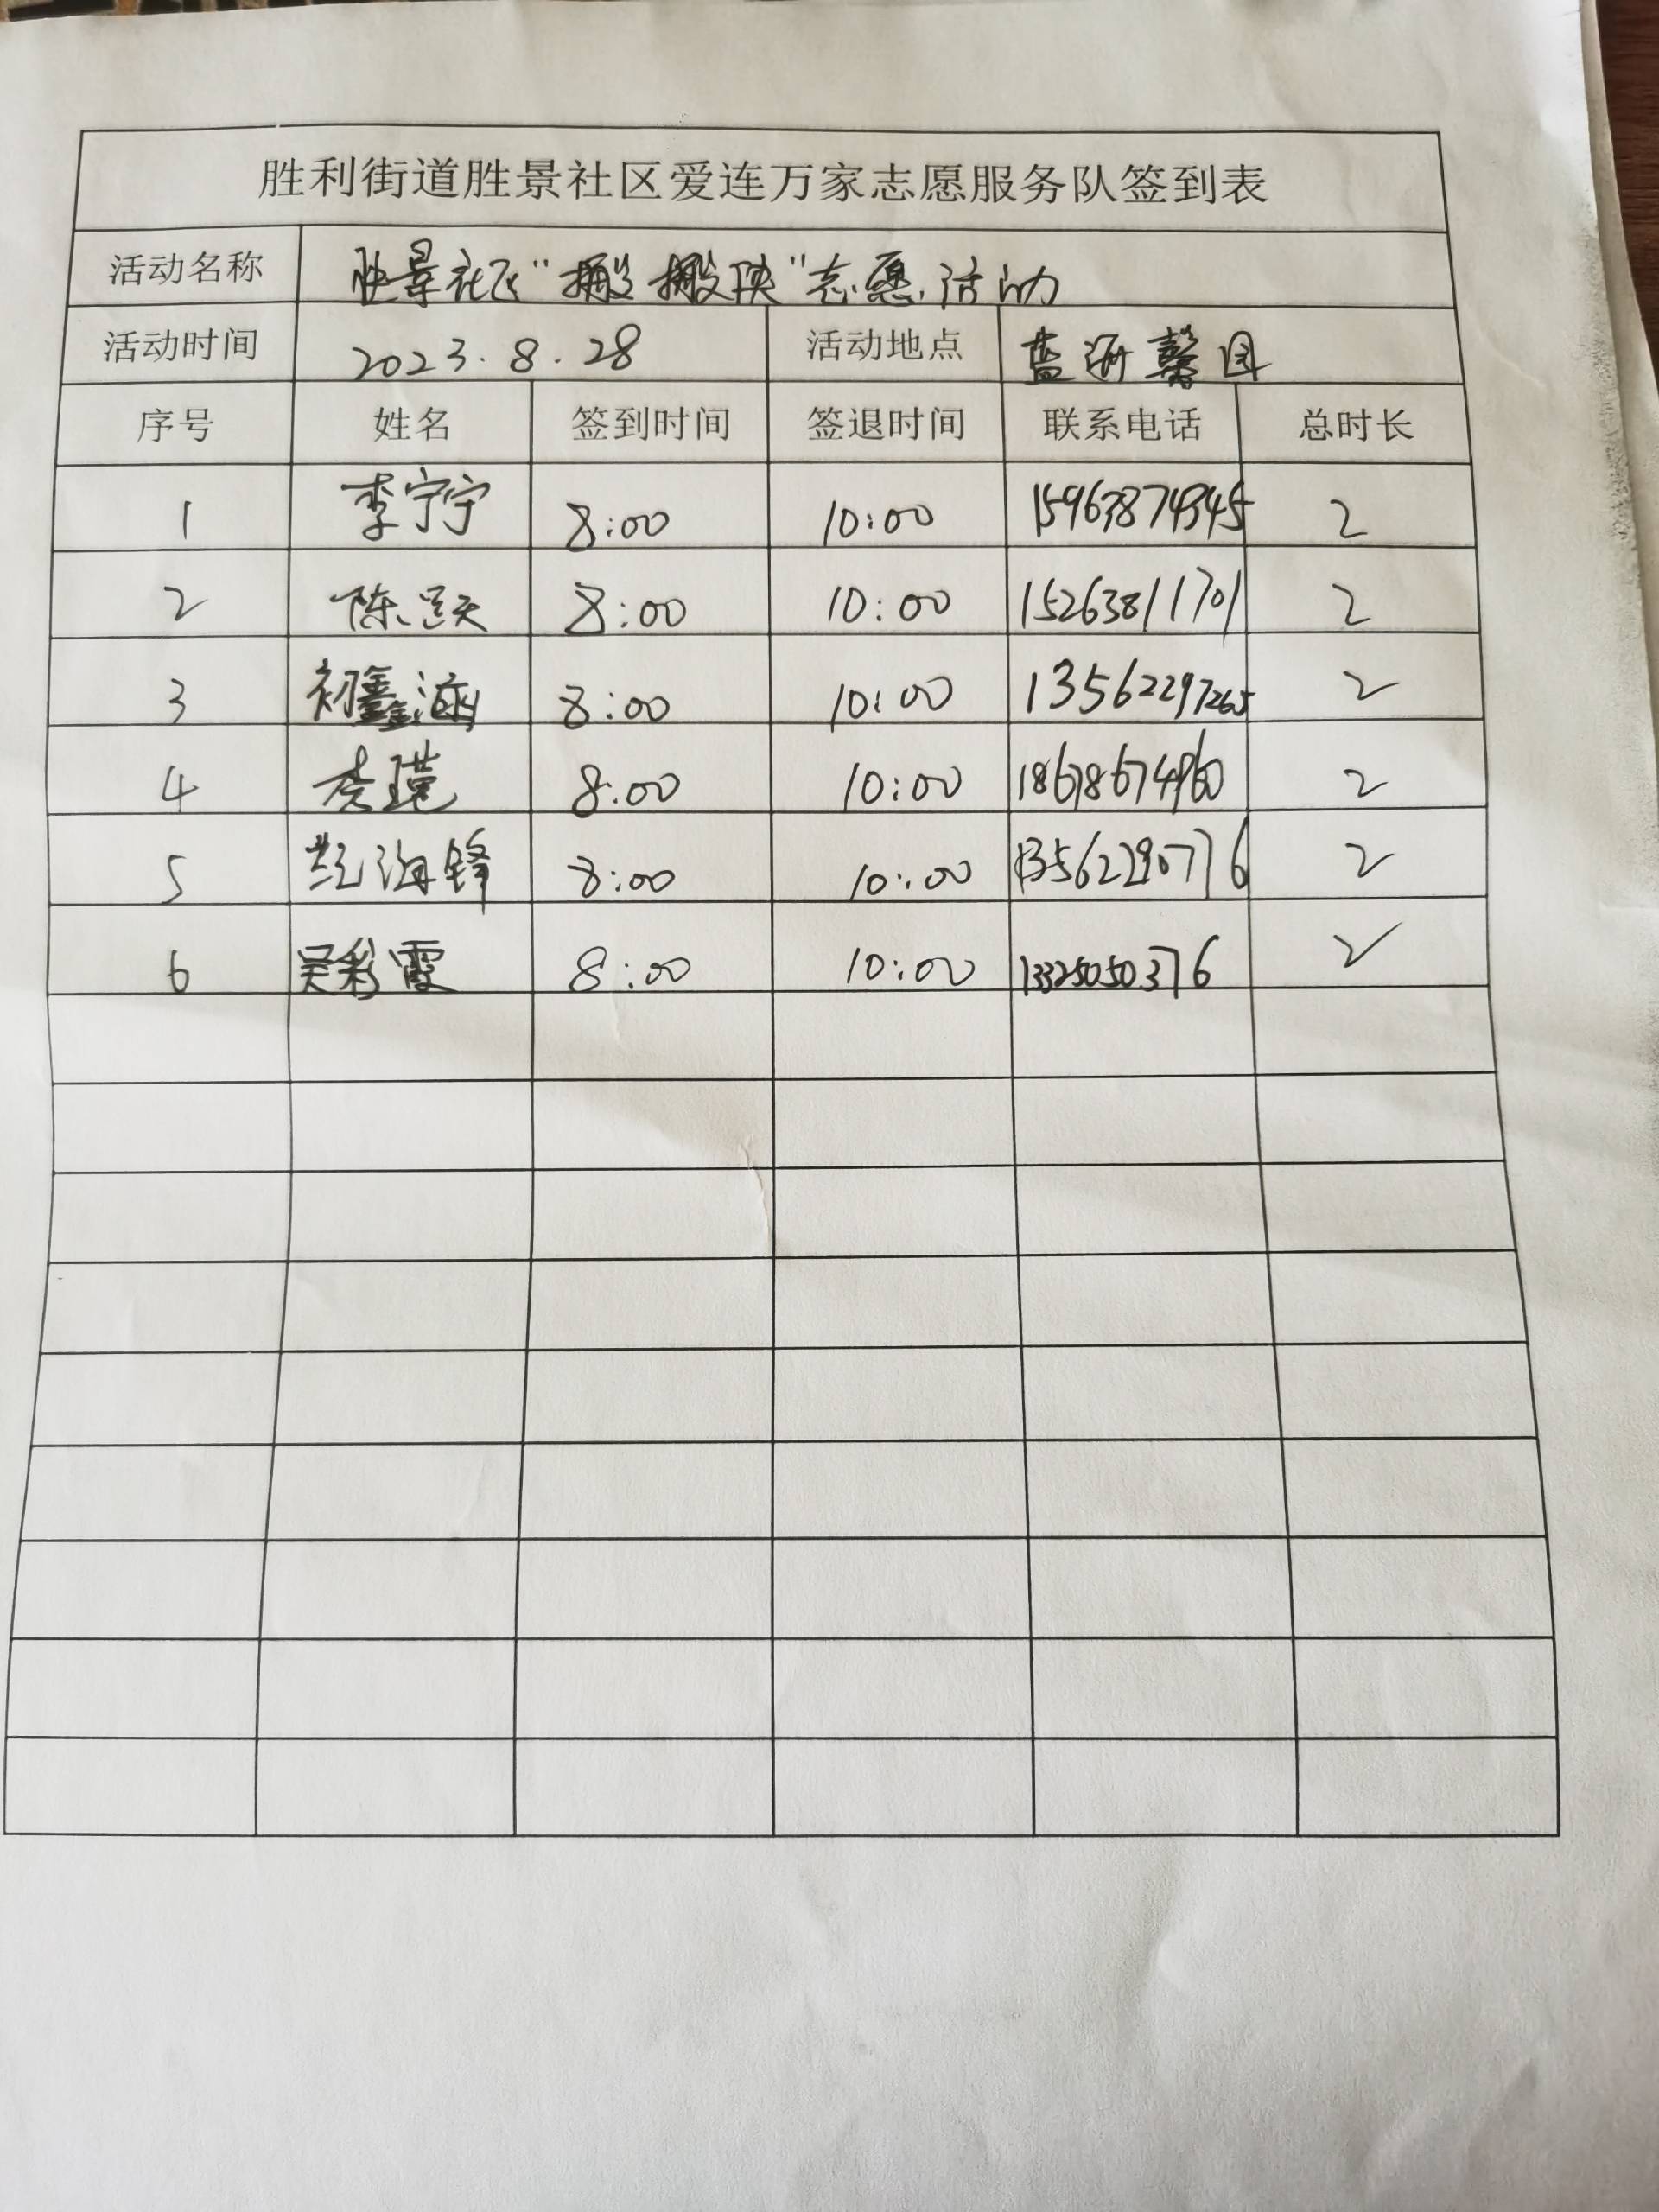 胜利街道胜景社区爱连万家志愿服务队签到表
活动名称 胜景社区“搬搬队”志愿活动
活动时间 2023.8.28 活动地点 蓝海馨园
序号 姓名 签到时间 签退时间 联系电话 总时长
1 李宁宁 8:00 10:00 15963874345 2
2 陈 8:00 10:00 15263811701 2
3 初鑫涵 8:00 10:00 13562297265 2
4 8:00 10:00 18678674960 2
5 海锋 8:00 10:00 13562290776 2
6 吴彩霞 8:00 10:00 13325050376 2